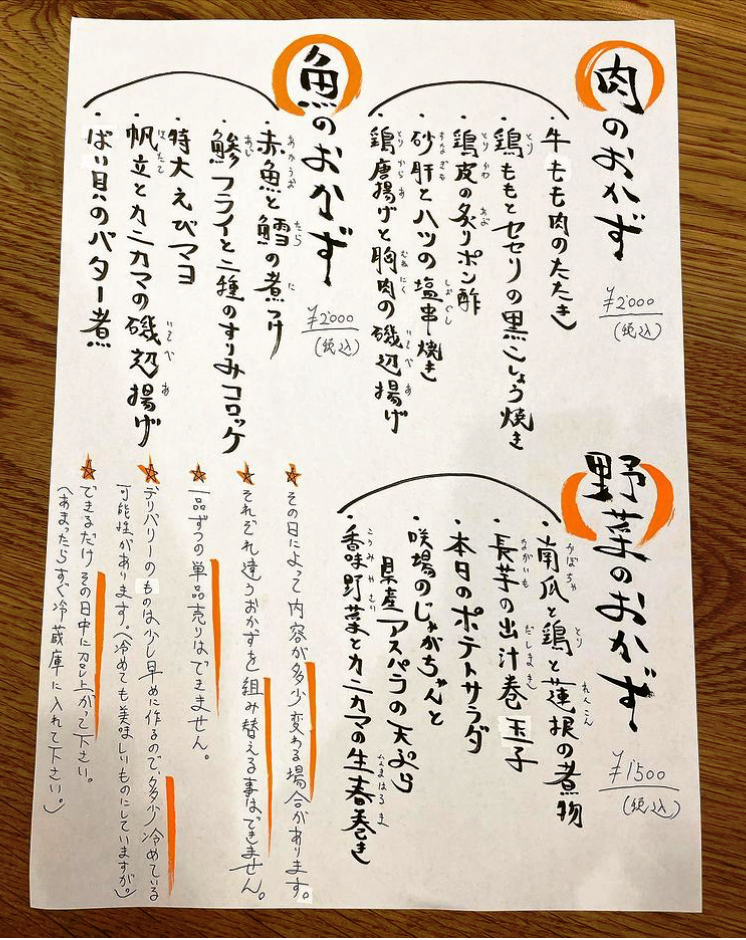 肉のおかず
¥2000
(税込)
・牛もも肉のたたき
・鶏ももとセセリの黒こしょう焼き
・鶏皮の炙りポン酢
・砂肝とハツの塩串焼き
・鶏唐揚げと胸肉の磯辺揚げ
魚のおかず
¥2000
(税込)
・赤魚と鱈の煮つけ
・鯵フライと二種のすりみコロッケ
・特大えびマヨ
・帆立とカニカマの磯辺揚げ
・ばい貝のバター煮
野菜のおかず
¥1500
(税込)
・南瓜と鶏と蓮根の煮物
・長芋の出汁巻玉子
・本日のポテトサラダ
・咲場のじゃがちゃんと
県産アスパラの天ぷら
・香味野菜とカニカマの生春巻き
☆その日によって内容が多少変わる場合があります。
☆それぞれ違うおかずを組み替える事はできません。
☆一品ずつの単品売りはできません。
☆デリバリーのものは少し早めに作るので、多少冷めている
可能性があります。(冷めても美味しいものにしていますが。)
☆できるだけその日中に召し上がって下さい。
(あまったらすぐ冷蔵庫に入れて下さい。)